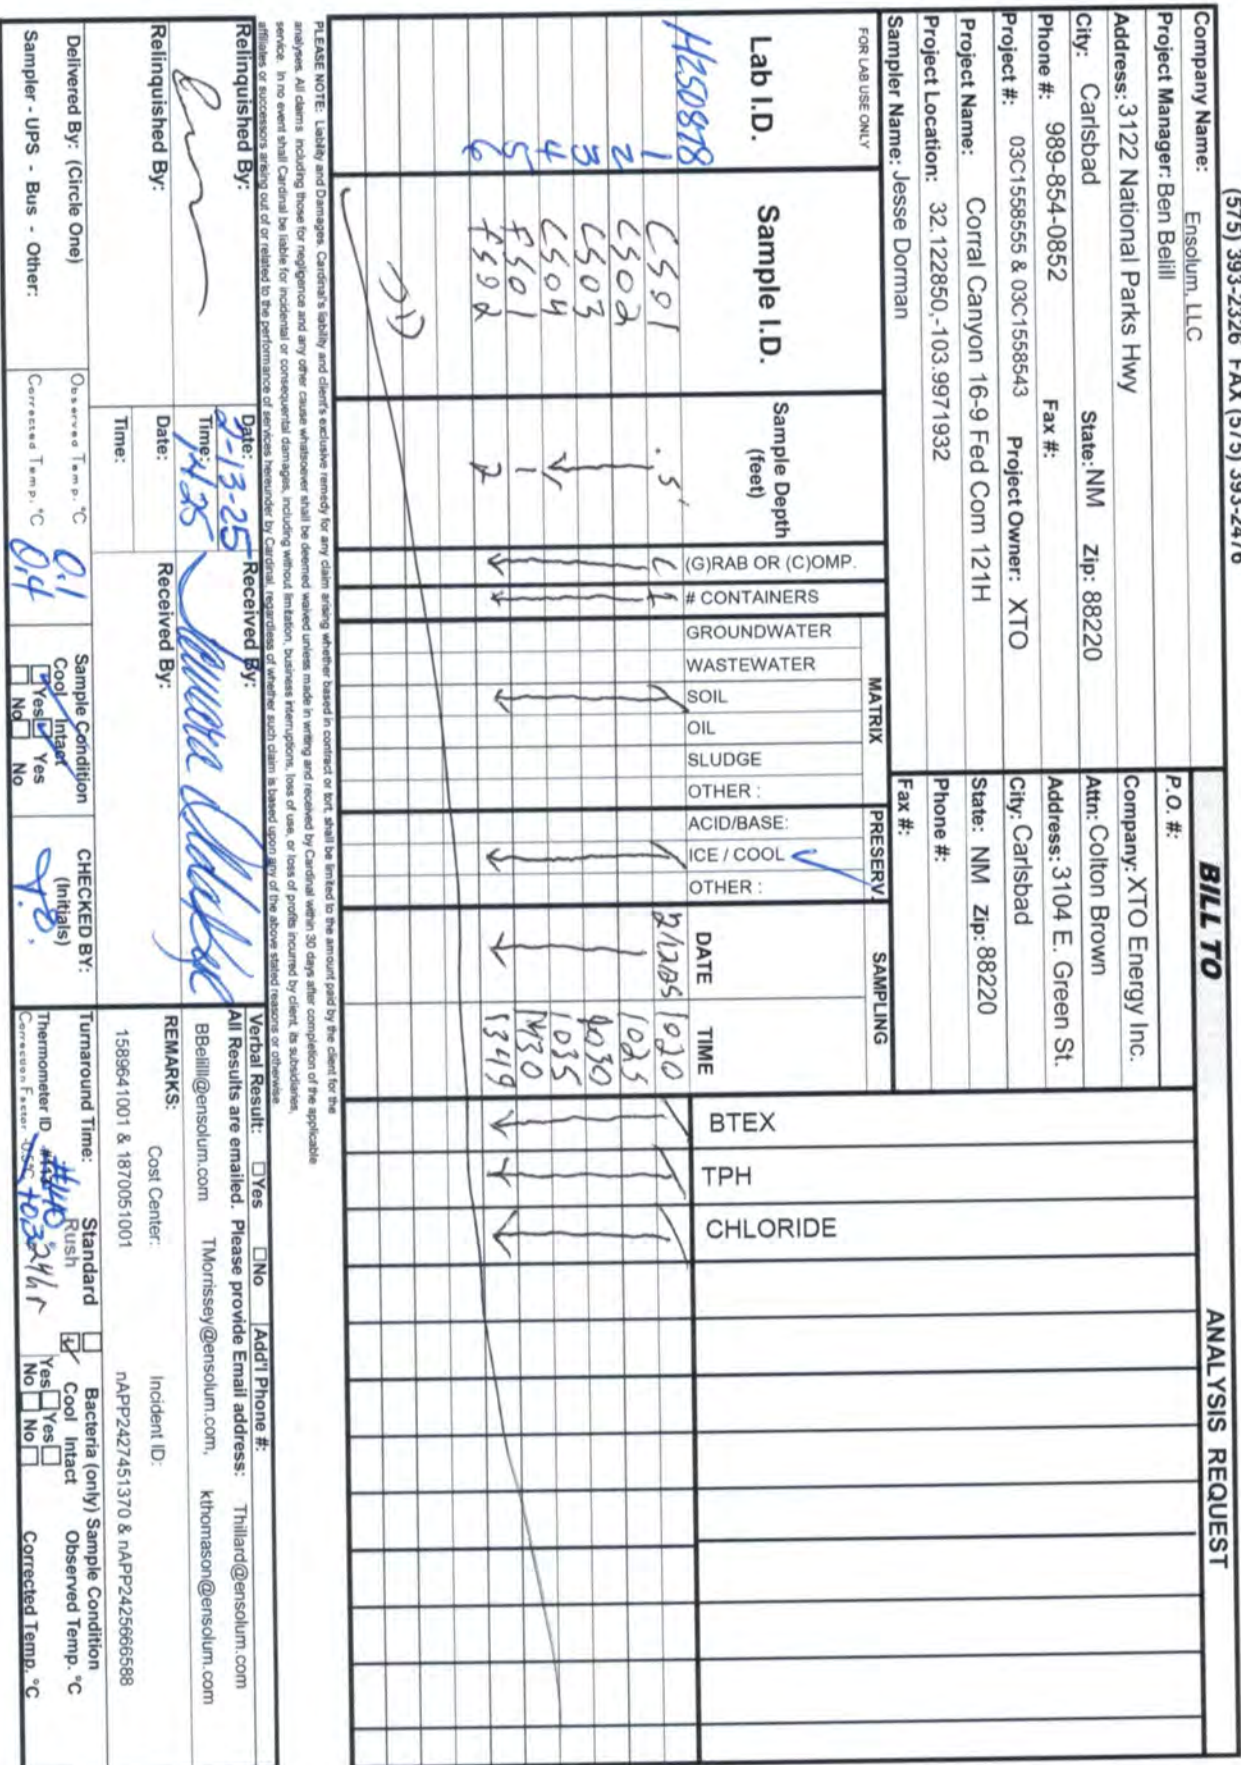 (575) 393-2326 FAX (575) 393-2476
Company Name: Ensolum, LLC
Project Manager: Ben Belill
Address: 3122 National Parks Hwy
City: Carlsbad State: NM Zip: 88220
Phone #: 989-854-0852 Fax #:
Project #: 03C1558555 & 03C1558543 Project Owner: XTO
Project Name: Corral Canyon 16-9 Fed Com 121H
Project Location: 32.122850,-103.9971932
Sampler Name: Jesse Dorman
BILL TO
P.O. #:
Company: XTO Energy Inc.
Attn: Colton Brown
Address: 3104 E. Green St.
City: Carlsbad
State: NM Zip: 88220
Phone #:
Fax #:
ANALYSIS REQUEST
FOR LAB USE ONLY
Lab I.D.
Sample I.D.
Sample Depth
(feet)
(G)RAB OR (C)OMP.
# CONTAINERS
MATRIX
GROUNDWATER
WASTEWATER
SOIL
OIL
SLUDGE
OTHER :
PRESERV.
ACID/BASE:
ICE / COOL
OTHER :
SAMPLING
DATE
TIME
BTEX
TPH
CHLORIDE
H250878
1 CS01 .5' C 1 2/12/25 1020
2 CS02 1025
3 CS03 1030
4 CS04 1035
5 FS01 1 1430
6 FS02 2
PLEASE NOTE: Liability and Damages. Cardinal's liability and client's exclusive remedy for any claim arising whether based in contract or tort, shall be limited to the amount paid by the client for the
analyses. All claims including those for negligence and any other cause whatsoever shall be deemed waived unless made in writing and received by Cardinal within 30 days after completion of the applicable
service. In no event shall Cardinal be liable for incidental or consequental damages, including without limitation, business interruptions, loss of use, or loss of profits incurred by client, its subsidiaries,
affiliates or successors arising out of or related to the performance of services hereunder by Cardinal, regardless of whether such claim is based upon any of the above stated reasons or otherwise.
Relinquished By:
Date: 2-13-25
Time: 1425
Received By:
Relinquished By:
Date:
Time:
Received By:
Verbal Result: □Yes □No Add'l Phone #:
All Results are emailed. Please provide Email address: Thillard@ensolum.com
BBelill@ensolum.com TMorrissey@ensolum.com, kthomason@ensolum.com
REMARKS:
Cost Center: Incident ID:
1589641001 & 1870051001 nAPP2427451370 & nAPP2425666588
Delivered By: (Circle One)
Sampler - UPS - Bus - Other:
Observed Temp. °C 0.1
Corrected Temp. °C 0.4
Sample Condition
Cool Intact
Yes Yes
No No
CHECKED BY:
(Initials)
Turnaround Time: Standard
Rush
24hr
Thermometer ID #140
Correction Factor -0.5°C +0.3
Bacteria (only) Sample Condition
Cool Intact Observed Temp. °C
Yes Yes
No No Corrected Temp. °C